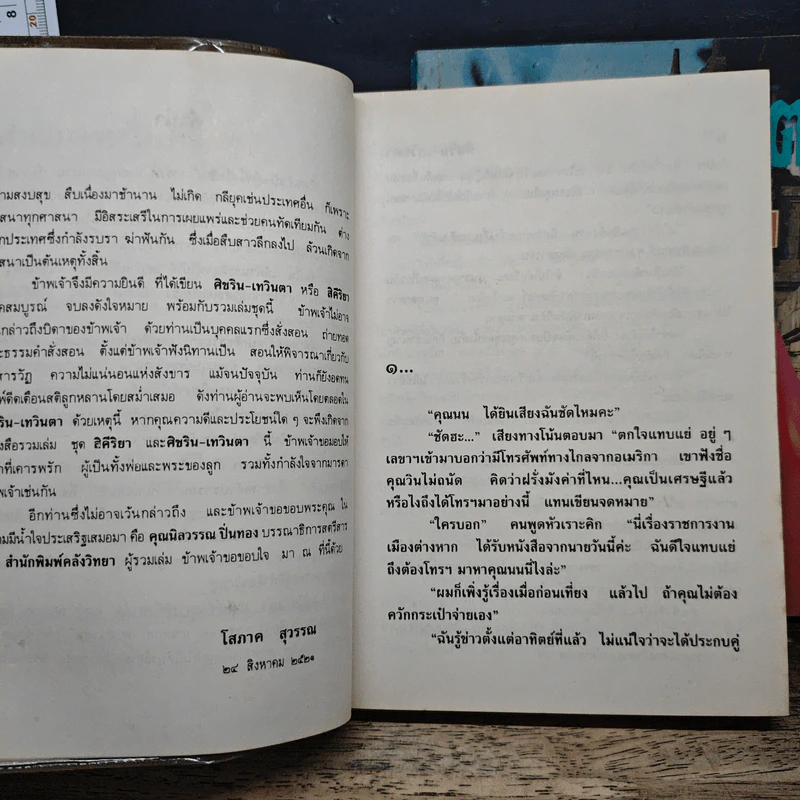 ามสงบสุข สืบเนื่องมาช้านาน ไม่เกิด กลียุคเช่นประเทศอื่น ก็เพราะ
สนาทุกศาสนา มีอิสระเสรีในการเผยแพร่และช่วยคนทัดเทียมกัน ต่าง
กประเทศซึ่งกำลังรบรา ฆ่าฟันกัน ซึ่งเมื่อสืบสาวลึกลงไป ล้วนเกิดจาก
สนาเป็นต้นเหตุทั้งสิ้น
ข้าพเจ้าจึงมีความยินดี ที่ได้เขียน ศิขริน-เทวินตา หรือ สิคิริยา
คสมบูรณ์ จบลงดังใจหมาย พร้อมกับรวมเล่มชุดนี้ ข้าพเจ้าไม่อาจ
นกล่าวถึงบิดาของข้าพเจ้า ด้วยท่านเป็นบุคคลแรกซึ่งสั่งสอน ถ่ายทอด
ะธรรมคำสั่งสอน ตั้งแต่ข้าพเจ้าฟังนิทานเป็น สอนให้พิจารณาเกี่ยวกับ
สารวัฏ ความไม่แน่นอนแห่งสังขาร แม้จนปัจจุบัน ท่านก็ยังอดทน
พ์ดีดเตือนสติลูกหลานโดยสม่ำเสมอ ดังท่านผู้อ่านจะพบเห็นโดยตลอดใน
ริน-เทวินตา ด้วยเหตุนี้ หากคุณความดีและประโยชน์ใด ๆ จะพึงเกิดจาก
งสือรวมเล่ม ชุด สิคิริยา และศิขริน-เทวินตา นี้ ข้าพเจ้าขอมอบให้
าที่เคารพรัก ผู้เป็นทั้งพ่อและพระของลูก รวมทั้งกำลังใจจากมารดา
พเจ้าเช่นกัน
อีกท่านซึ่งไม่อาจเว้นกล่าวถึง และข้าพเจ้าขอขอบพระคุณ ใน
ามมีน้ำใจประเสริฐเสมอมา คือ คุณนิลวรรณ ปิ่นทอง บรรณาธิการสตรีสาร
สำนักพิมพ์คลังวิทยา ผู้รวมเล่ม ข้าพเจ้าขอขอบใจ มา ณ ที่นี้ด้วย
โสภาค สุวรรณ
๒๔ สิงหาคม ๒๕๒๑
๑...
“คุณนน ได้ยินเสียงฉันชัดไหมคะ”
“ชัดฮะ...” เสียงทางโน้นตอบมา “ตกใจแทบแย่ อยู่ ๆ
เลขาฯเข้ามาบอกว่ามีโทรศัพท์ทางไกลจากอเมริกา เขาฟังชื่อ
คุณวินไม่ถนัด คิดว่าฝรั่งมังค่าที่ไหน...คุณเป็นเศรษฐีแล้ว
หรือไงถึงได้โทรฯมาอย่างนี้ แทนเขียนจดหมาย”
“ใครบอก” คนพูดหัวเราะคิก “นี่เรื่องราชการงาน
เมืองต่างหาก ได้รับหนังสือจากนายวันนี้ค่ะ ฉันดีใจแทบแย่
ถึงต้องโทรฯ มาหาคุณนนนี่ไงล่ะ”
“ผมก็เพิ่งรู้เรื่องเมื่อก่อนเที่ยง แล้วไป ถ้าคุณไม่ต้อง
ควักกระเป๋าจ่ายเอง”
“ฉันรู้ข่าวตั้งแต่อาทิตย์ที่แล้ว ไม่แน่ใจว่าจะได้ประกบคู่
8
20